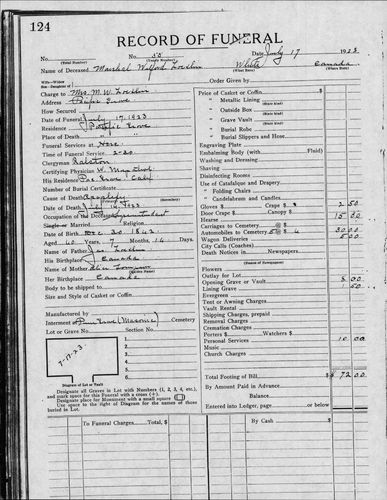 124
RECORD OF FUNERAL
No. No. 50 Date July 17 1923
(Total Number) (Yearly Number)
Name of Deceased Marshal Wilford White Canada
(What Race) (Where Born)
Wife—Widow
Son—Daughter of
Order Given by
Charge to Mrs. M. W.
Address Pacific Grove
How Secured
Date of Funeral July 17, 1923
Residence Pacific Grove
Place of Death " "
Funeral Services at Here
Time of Funeral Service 2-30
Clergyman Ralston
Certifying Physician W.
His Residence Pac Grove Calif
Number of Burial Certificate
Cause of Death
(Secondary)
Date of Death July 14, 1923
Occupation of the Deceased
Single or Married Religion
Date of Birth Dec 30 1842
Aged 40 Years, 7 Months, 14 Days
Name of Father
His Birthplace Canada
Name of Mother
(Maiden Name)
Her Birthplace Canada
Body to be shipped to
Size and Style of Casket or Coffin
Manufactured by
Interment at Pac Grove (Masonic) Cemetery
Lot or Grave No. Section No.
7-17-23
Diagram of Lot or Vault
Designate all Graves in Lot with Numbers (1, 2, 3, 4, etc.),
and mark space for this Funeral with a cross (+).
Designate place for Monument with a small square (□)
Use space to the right of Diagram for the names of those
buried in Lot.
Price of Casket or Coffin
" Metallic Lining
(State Kind)
" Outside Box
(State Kind)
" Grave Vault
(State Kind)
" Burial Robe
(State Kind)
" Burial Slippers and Hose
Engraving Plate
Embalming Body (with Fluid)
Washing and Dressing
Shaving
Disinfecting Rooms
Use of Catafalque and Drapery
" Folding Chairs
" Candelabrum and Candles
Gloves $ Crape $ 2 50
Door Crape $ Canopy
Hearse 15 00
Carriages to Cemetery @ $
Automobiles to Cemetery 5 @ $ 6 30 00
Wagon Deliveries 5 00
City Calls (Coaches)
Death Notices in Newspapers
(Names of Newspapers)
Flowers
Outlay for Lot
Opening Grave or Vault 8 00
Lining Grave 1 50
Evergreen
Tent or Awning Charges
Vault Rental
Shipping Charges, prepaid
Removal Charges
Cremation Charges
Porters $ Watchers $
Personal Services 10 00
Music
Church Charges
Total Footing of Bill $ 72 00
By Amount Paid in Advance
Balance
Entered into Ledger, page or below
To Funeral Charges Total, $
By Cash $